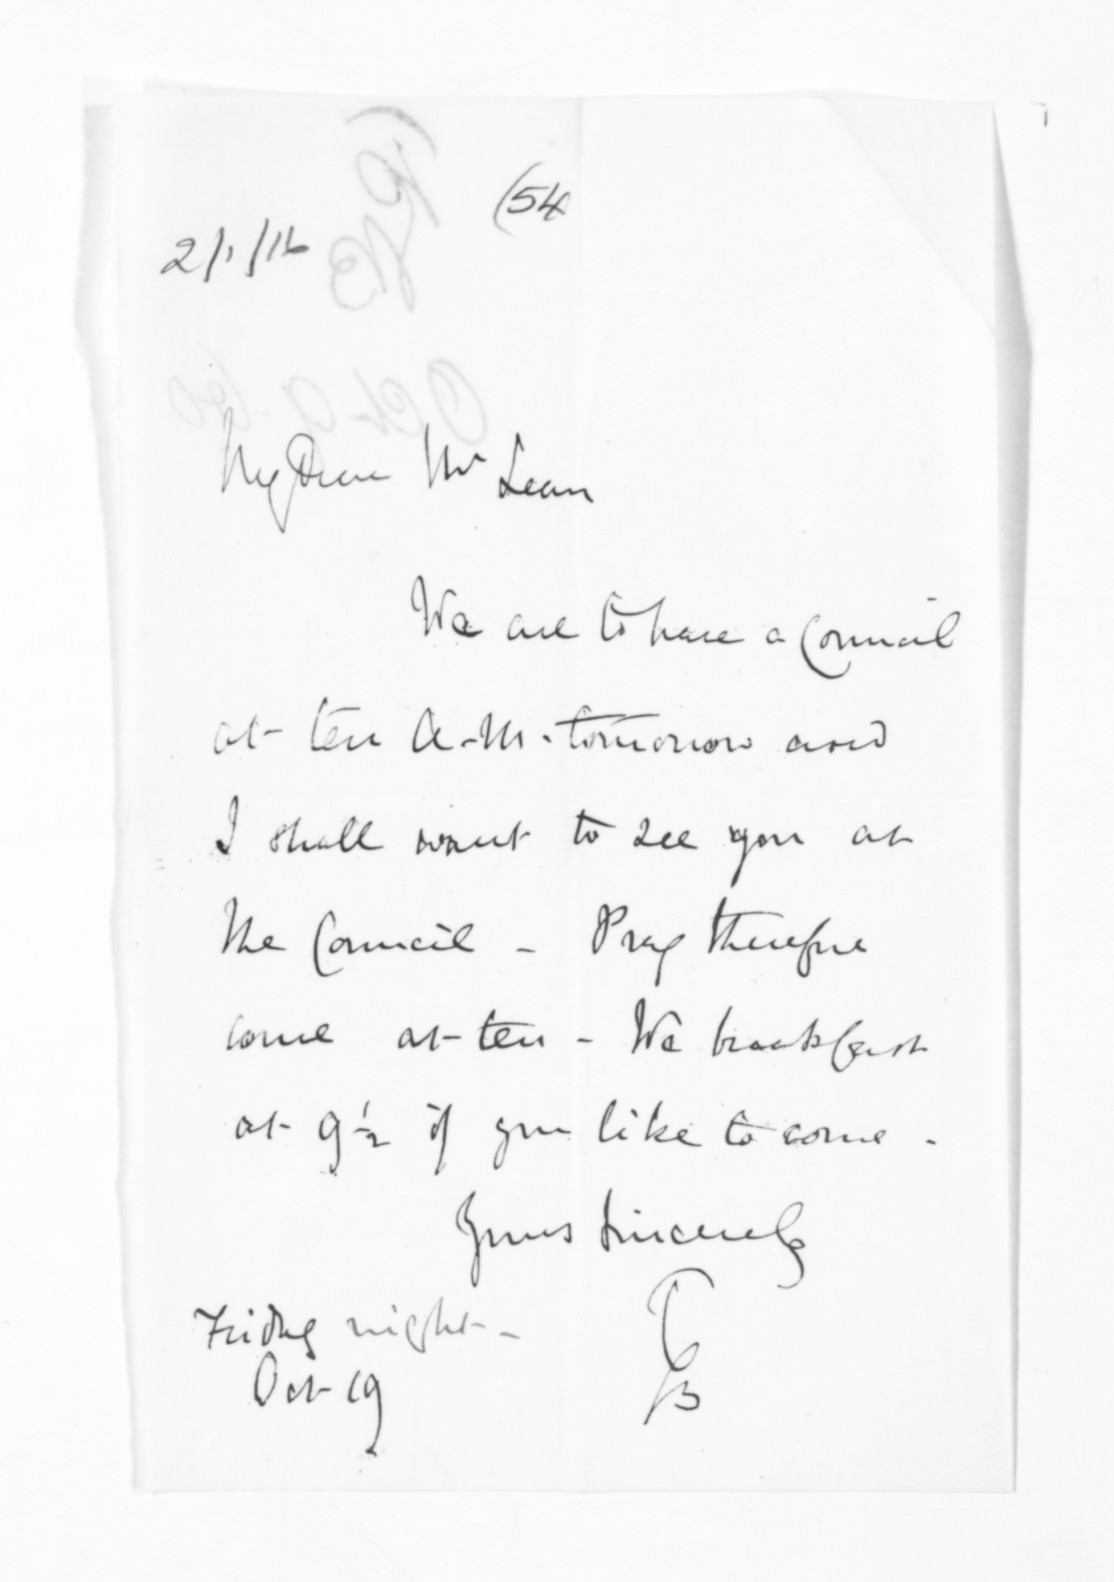 (54
2/1/16
My Dear Mr Lean
We are to have a Council
at ten A.M. tomorrow and
I shall want to see you at
the Council - Pray therefore
come at ten - We breakfast
at 9½ if you like to come.
Yours Sincerely
Friday night -
Oct 19